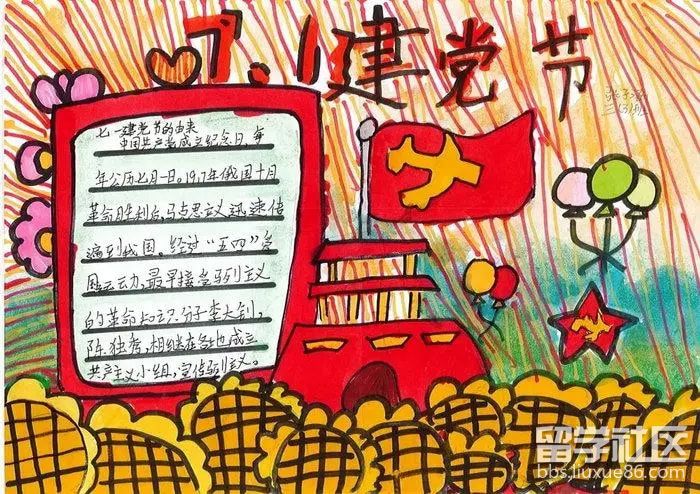 7.1建党节
七一建党节的由来
中国共产党成立纪念日,每
年公历七月一日。1917年俄国十月
革命胜利后,马克思主义迅速传
遍到我国。经过“五四”爱
国运动,最早接受马列主义
的革命知识分子李大钊,
陈独秀,相继在各地成立
共产主义小组,宣传马列主义。
留学社区
bbs.liuxue86.com